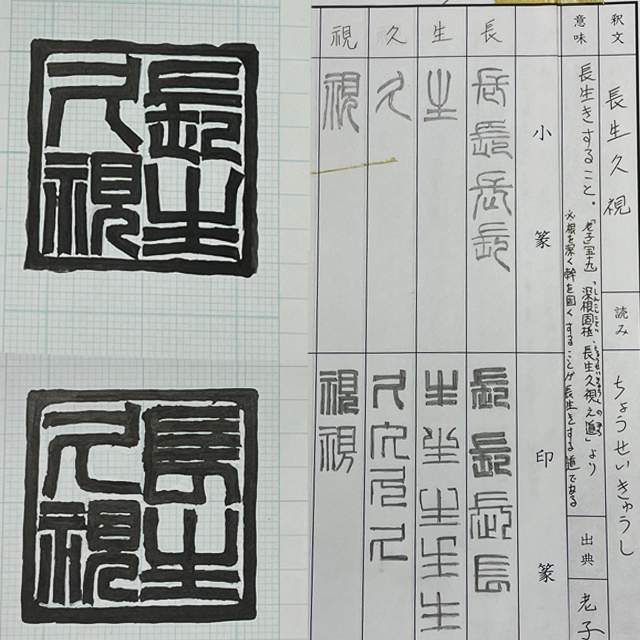 長生
久視
長生
久視
釈文
長生久視
読み
ちょうせいきゅうし
意味
長生きすること。
「深根固柢、長生久視之道」より
根を深く幹を固くすることが長生をする道である
出典
老子
小篆
印篆
長
長長長長
長長長長
生
生
生生生生生
久
久
久久久久
視
視
視視